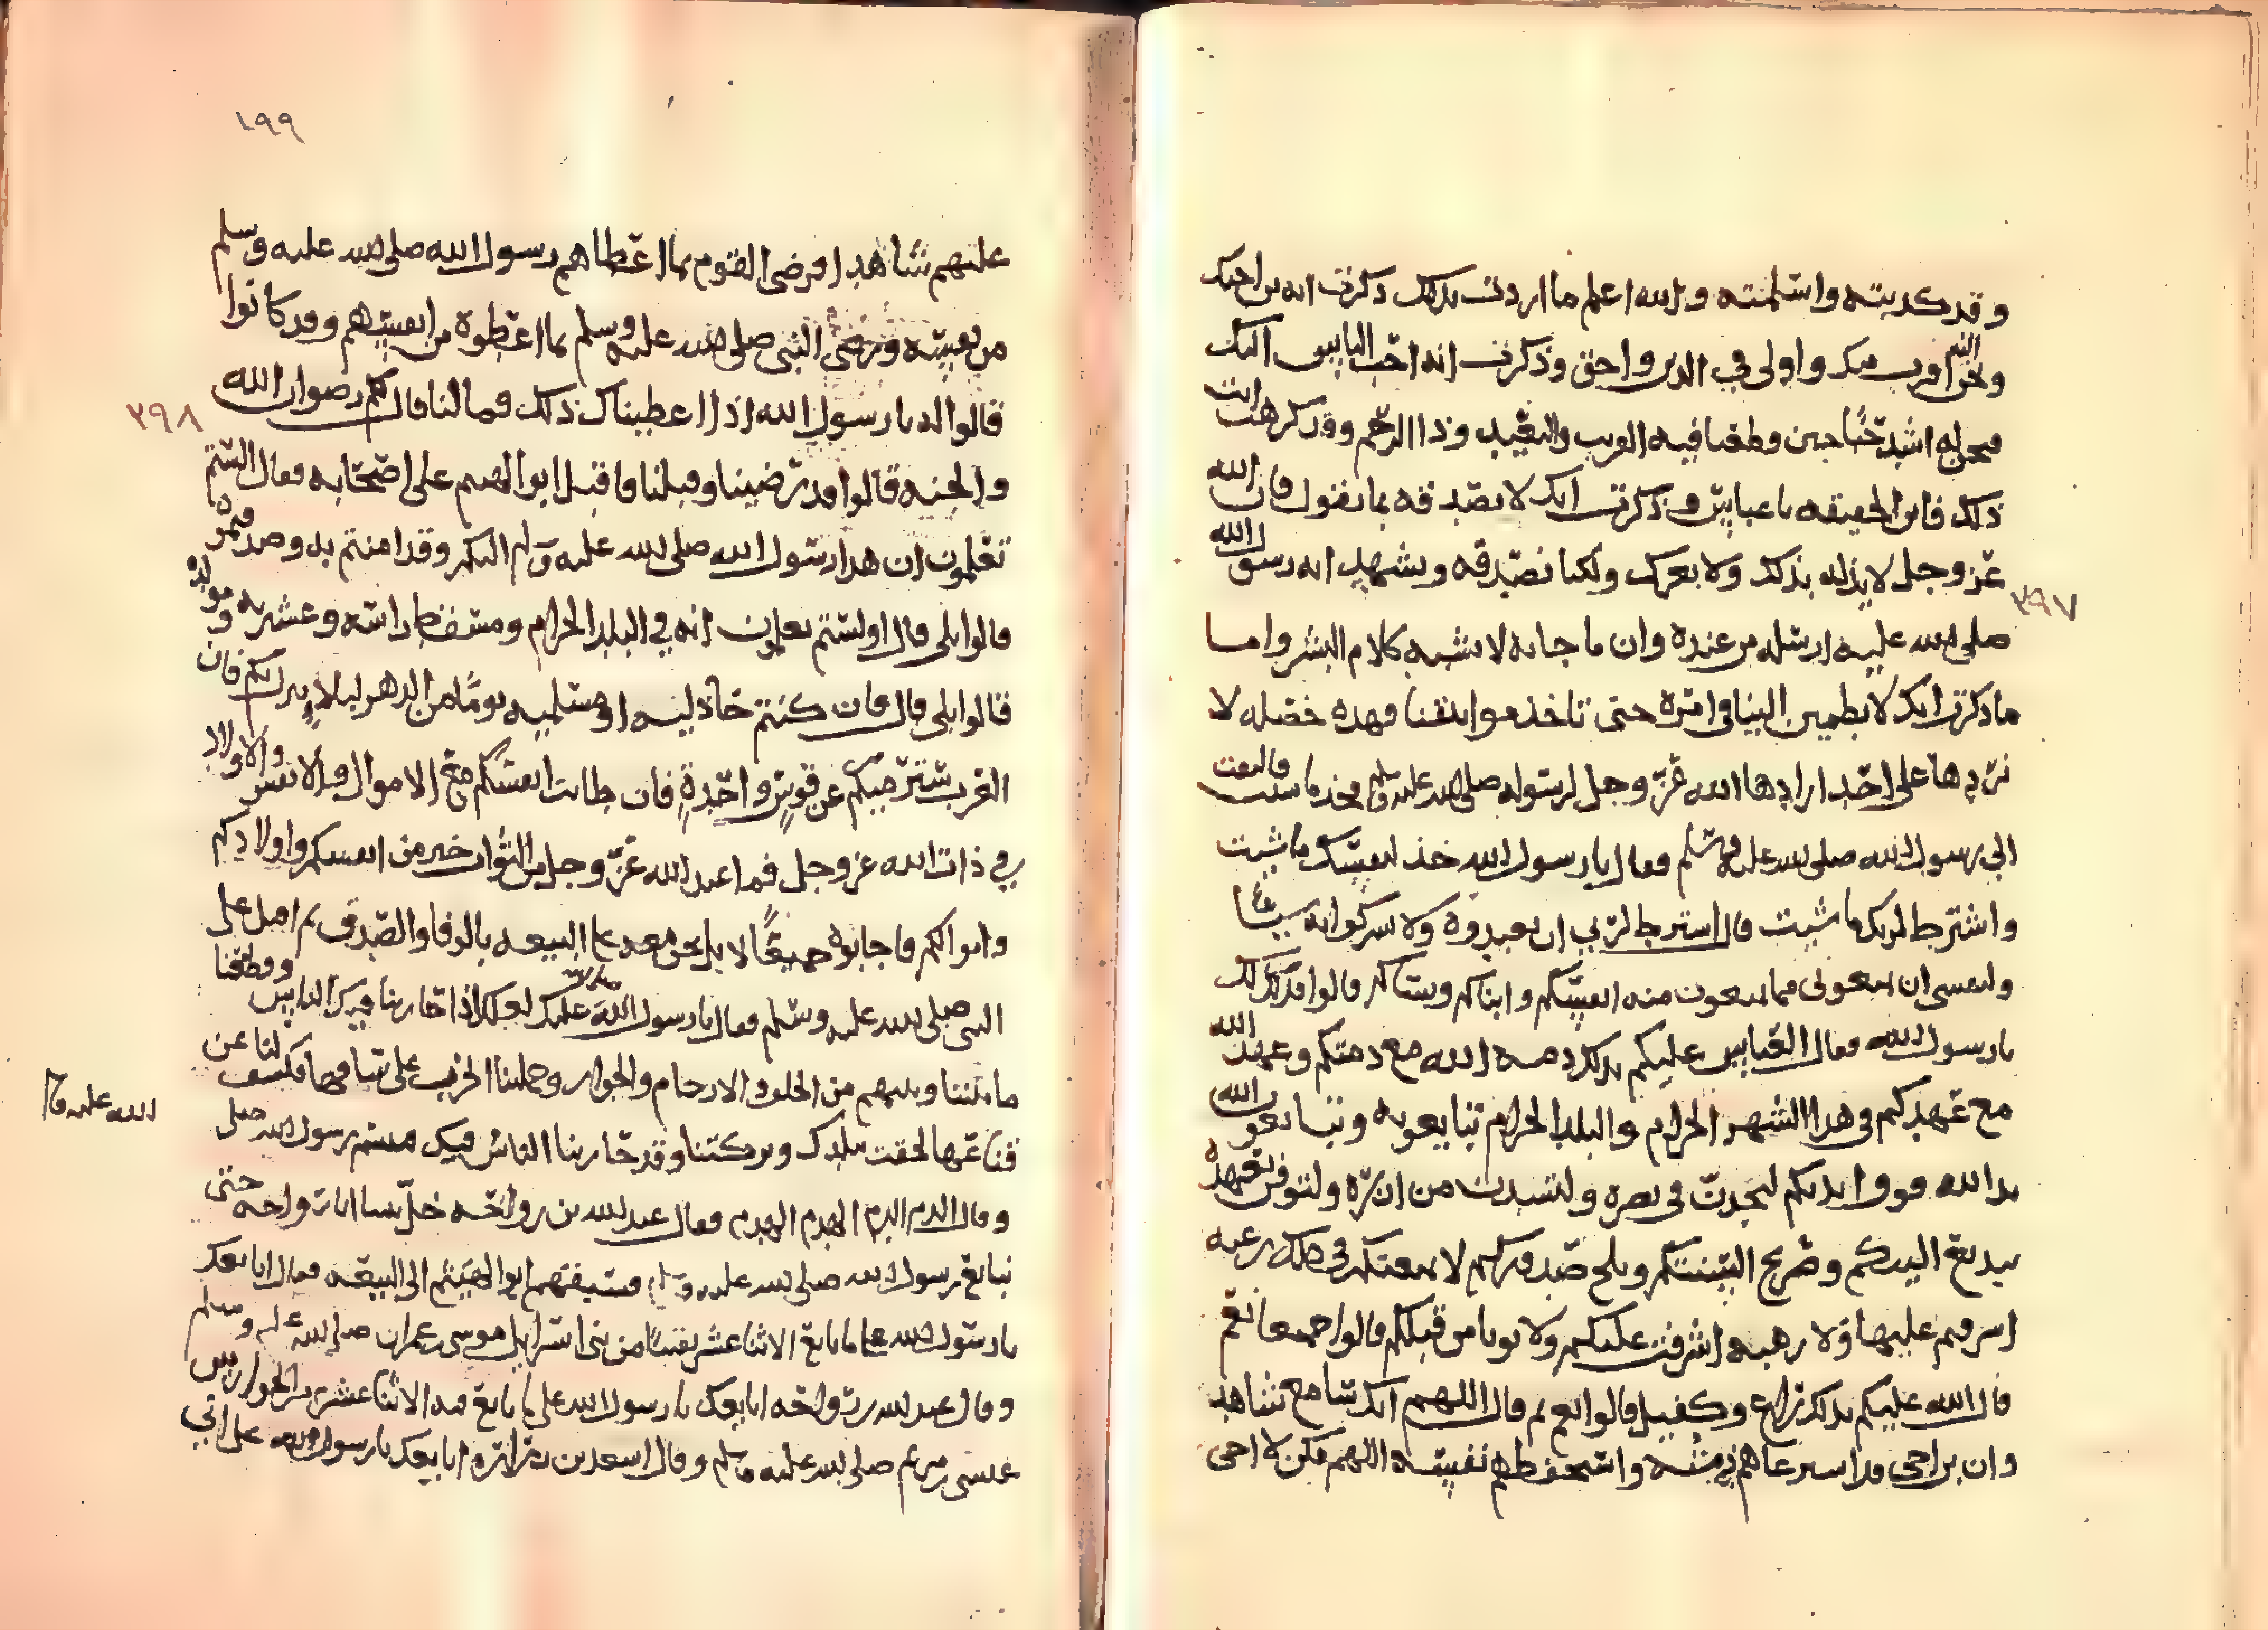 وقد كذبته واسلمته والله اعلم ما اردت بذلك ذكرت انه ابن اخيك
ونحن اقرب منك واولى في الدين واحق وذكرت انه احب الناس اليك
فنحن له اشد حبا حين وقطعنا فيه القريب والبعيد وذا الرحم وقد كرهت انت
ذلك فان الحقيقه يا عباس وذكرت انك لا تصدقه بما يقول فان الله
عز وجل لا يذله بذلك ولا يعزك ولكنا نصدقه ونشهد انه رسول الله
٣٩٧
صلى الله عليه ارسله من عنده وان ما جا به لا يشبه كلام البشر واما
ما ذكرت انك لا تطمين الينا في امره حتى تاخذ مواثيقنا فهذه خصله لا
نردها على احد ارادها الله عز وجل لرسوله صلى الله عليه وسلم فخذ ما شيت والتفت
الى رسول الله صلى الله عليه وسلم فقال يا رسول الله خذ لنفسك ما شيت
واشترط لربك ما شيت قال اشترط لربي ان تعبدوه ولا تشركوا به شيا
ولنفسي ان تمنعوني مما تمنعون منه انفسكم وابناكم ونساكم قالوا فذلك لك
يا رسول الله فقال العباس عليكم بذلك ذمه الله مع ذمتكم وعهد الله
مع عهدكم في هذا الشهر الحرام والبلد الحرام تبايعونه وتبايعون الله
يد الله فوق ايديكم لتجدن في نصره ولتشدن من ازره ولتوفن بعهده
قال الله عليكم بذلك راع وكفيل قالوا نعم قال اللهم انك سامع شاهد
وان ابن اخي قد استرعاهم ذمته واستحفظهم نفسه اللهم فكن لابن اخي
١٩٩
عليهم شاهدا فرضي القوم بما اعطاهم رسول الله صلى الله عليه وسلم
من نفسه ورضي النبي صلى الله عليه وسلم بما اعطوه من انفسهم وقد كانوا
قالوا له يا رسول الله اذا اعطيناك ذلك فما لنا قال لكم رضوان الله
٣٩٨
والجنه قالوا قد رضينا وقبلنا فاقبل ابو الهيثم على اصحابه فقال الستم
تعلمون ان هذا رسول الله صلى الله عليه وسلم اليكم وقد امنتم به وصدقتموه
قالوا بلى قال اولستم تعلمون انه في البلد الحرام ومسقط راسه وعشيرته ومولده
قالوا بلى قال فان كنتم خاذليه او مسلميه يوما من الدهر لبلا ينزل بكم فان
العرب سترميكم عن قوس واحدة فان طابت انفسكم مع الاموال والانفس والاولاد
في ذات الله عز وجل فما عند الله عز وجل من الثواب خير من انفسكم واولادكم
واموالكم فاجابوه جميعا لا بل نحن معه على البيعه بالوفا والصدق ثم اقبل على
النبي صلى الله عليه وسلم فقال يا رسول الله عليك لعلك اذا حاربنا فيك الناس وقطعنا
ما بيننا وبينهم من الحلف والارحام والجوار وحملتنا الحرب على شيافهها فكشف لنا عن
قناعها لحقت ببلدك وتركتنا وقد حاربنا الناس فيك فتبسم رسول الله صلى
الله عليه وسلم
وقال الدم الدم الهدم الهدم فقال عبد الله بن رواحه خل بيننا ابا رواحه حتى
نبايع رسول الله صلى الله عليه وسلم فسبقهم ابو الهيثم الى البيعه فقال ابايعك
يا رسول الله على ما بايع الاثنا عشر نقيبا من بني اسرائيل موسى بن عمران صلى الله عليه وسلم
وقال عبد الله بن رواحه ابايعك يا رسول الله على ما بايع فيه الاثنا عشر من الحواريين
عيسى بن مريم صلى الله عليه وسلم وقال اسعد بن زرارة ابايعك يا رسول الله على اني